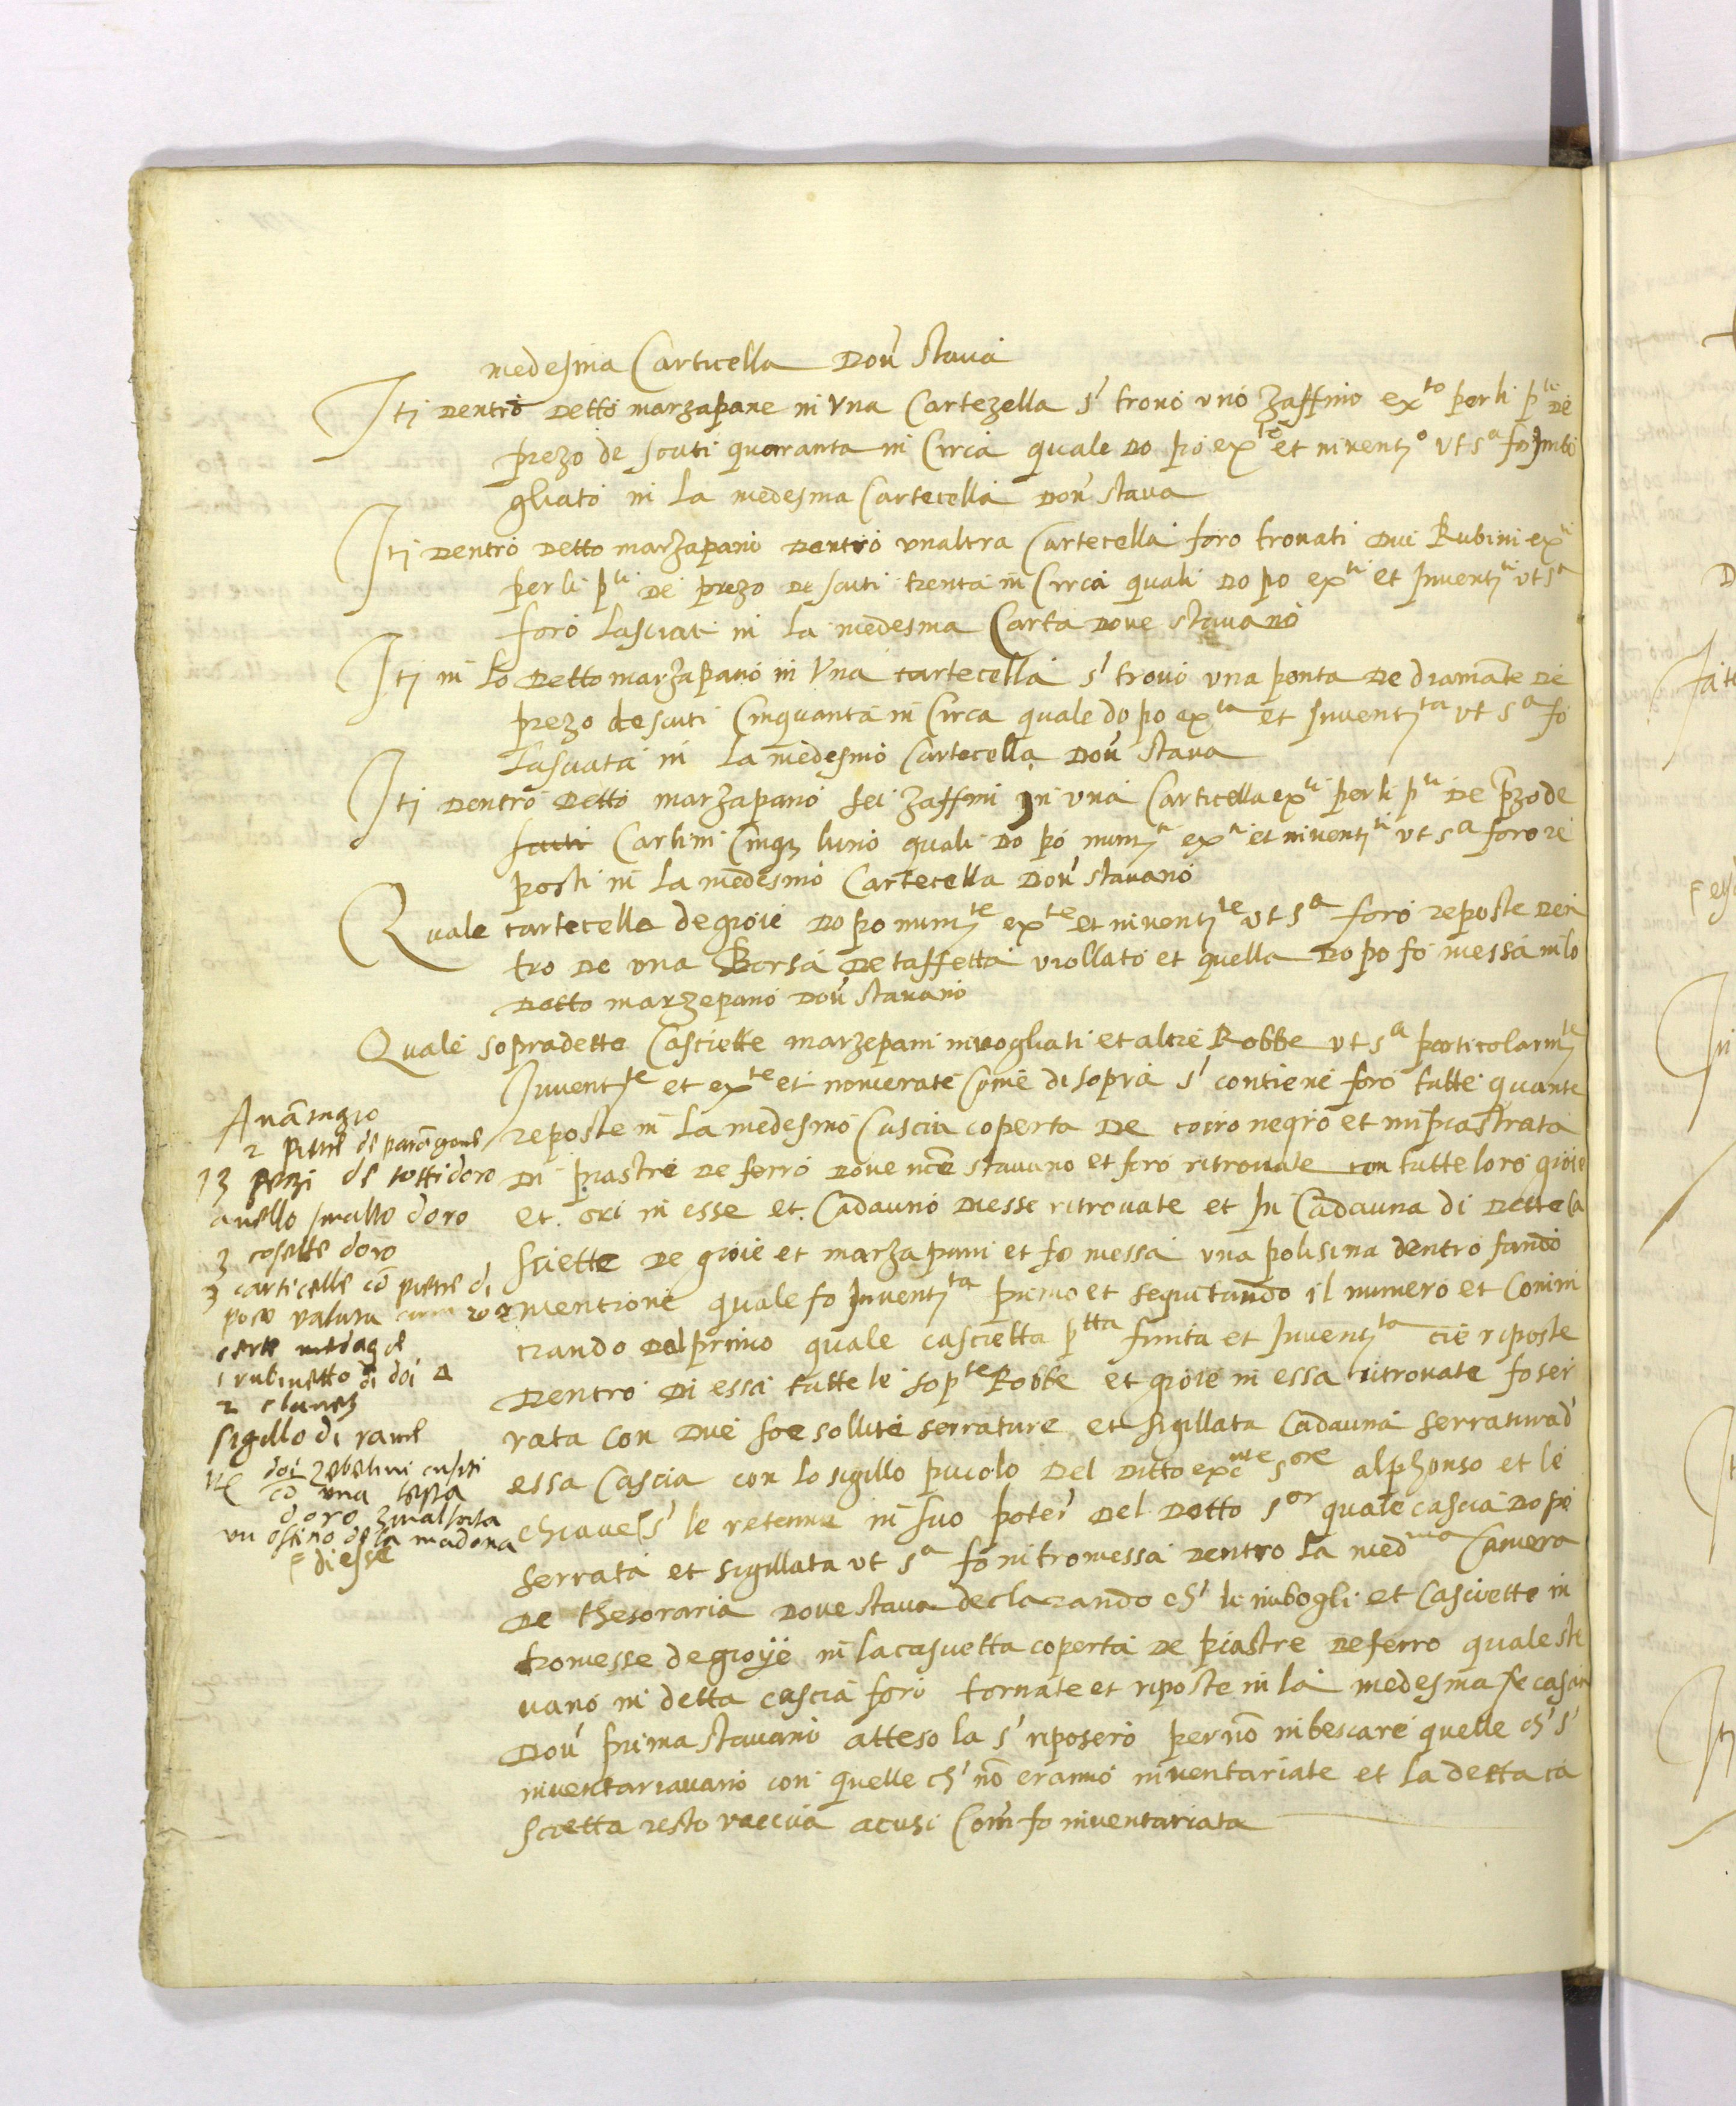 medesma Carticella dou' staua
Itj dentro detto marzapane in Vna Cartezella s' trouò vno zaffino ex.to per li p.ti de
prezo de scuti quaranta in Circa quale do po ex.to et inuentj.o vt s.a fo Jmbo
gliato in la medesma Cartecella dou' staua
Itj dentro detto marzapano dentro vnaltra Cartecella foro trouati dui Rubini ex.ti
per li p.ti de prezo de scuti trenta in Circa quali do po ex.ti et Jnuentj.ti vt s.a
foro Lasciati in la medesma Carta doue stauano
Itj in Lo detto marzapano in Vna cartecella s' trouò vna ponta de diamante de
prezo de scuti Cinquanta in Circa quale do po ex.ta et Jnuentj.ta vt s.a fo
Lasciata in la medesmo Cartecella dou' staua
Itj dentro detto marzapano sei zaffini Jn vna Carticella ex.ti per li p.ti de przo de
scuti Carlini Cinq3 luno quali do po numj.ti ex.ti et inuentj.ti vt s.a foro re
posti in la medesmo Cartecella dou' stauano
Quale cartecella de gioie do po numj.te ex.te et inuentj.te vt s.a foro reposte den
tro de vna Borsa de taffetta viollato et quella do po fo messa in lo
detto marzepano dou' stauano
Quale sopradette Casciette marzepani inuogliati et altre Robbe vt s.a particolarm.te
Jnuentj.te et ex.te et nomerate Come di sopra s' contiene foro tutte quante
reposte in la medesmo Cascia coperta de coiro negro et inpiastrata
di piastre de ferro doue nce stauano et foro ritrouate con tutte loro gioie
et ori in esse et Cadauno diesse ritrouate et In Cadauna di dette Ca
sciette de gioie et marzapani et fo messa vna polisina dentro fando
mentione quale fo Jnuentj.ta primo et sequitando il numero et Comin
ciando dal primo quale cascietta p.tta finita et Jnuentj.ta cie riposte
dentro di essa tutte le sop.te Robbe et gioie in essa ritrouate fo ser
rata con due soe sollite serrature et sigillata Cadauna serratura d'
essa Cascia con lo sigillo picolo del ditto exc.nte s.ore alphonso et le
chiaue s' le retenne in suo poter del detto s.or quale cascia do po
serrata et sigillata vt s.a fo intromessa dentro la med.ma Camera
de thesoraria doue staua declarando ch' li inbogli et Casciette in
tromesse de gioye in la cascietta coperta de piastre de ferro quale sta
uano in detta cascia foro tornate et riposte in la medesma
dou' prima stauano atteso la s' riposero per nō inbescare quelle ch' s'
inuentariauano con quelle ch' nō eranno inuentariate et la detta ca
scietta resto vaccua acusi Com' fo inuentariata
Auāmagio
2 pietre de parāgone
13 pezi de tottidoro
anello smalto d'oro
3 cosette doro
3 carticelle cō pietre di
poco valuta
certe medag e
1 rubinetto di doi Δ
2
sigillo di rame
doi zebelini cusiti
cō vna testa
d'oro zmaltata
vn ofitio de la madona
diesse